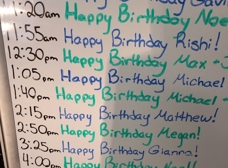 Happy Birthday
1:20am Happy Birthday
1:55am Happy Birthday Rishi!
12:30pm Happy Birthday Max
1:05pm Happy Birthday Michael
1:40pm Happy Birthday Michael
2:15pm Happy Birthday Matthew!
2:50pm Happy Birthday Megan!
3:25pm Happy Birthday Gianna!
4:00pm Happy Birthday